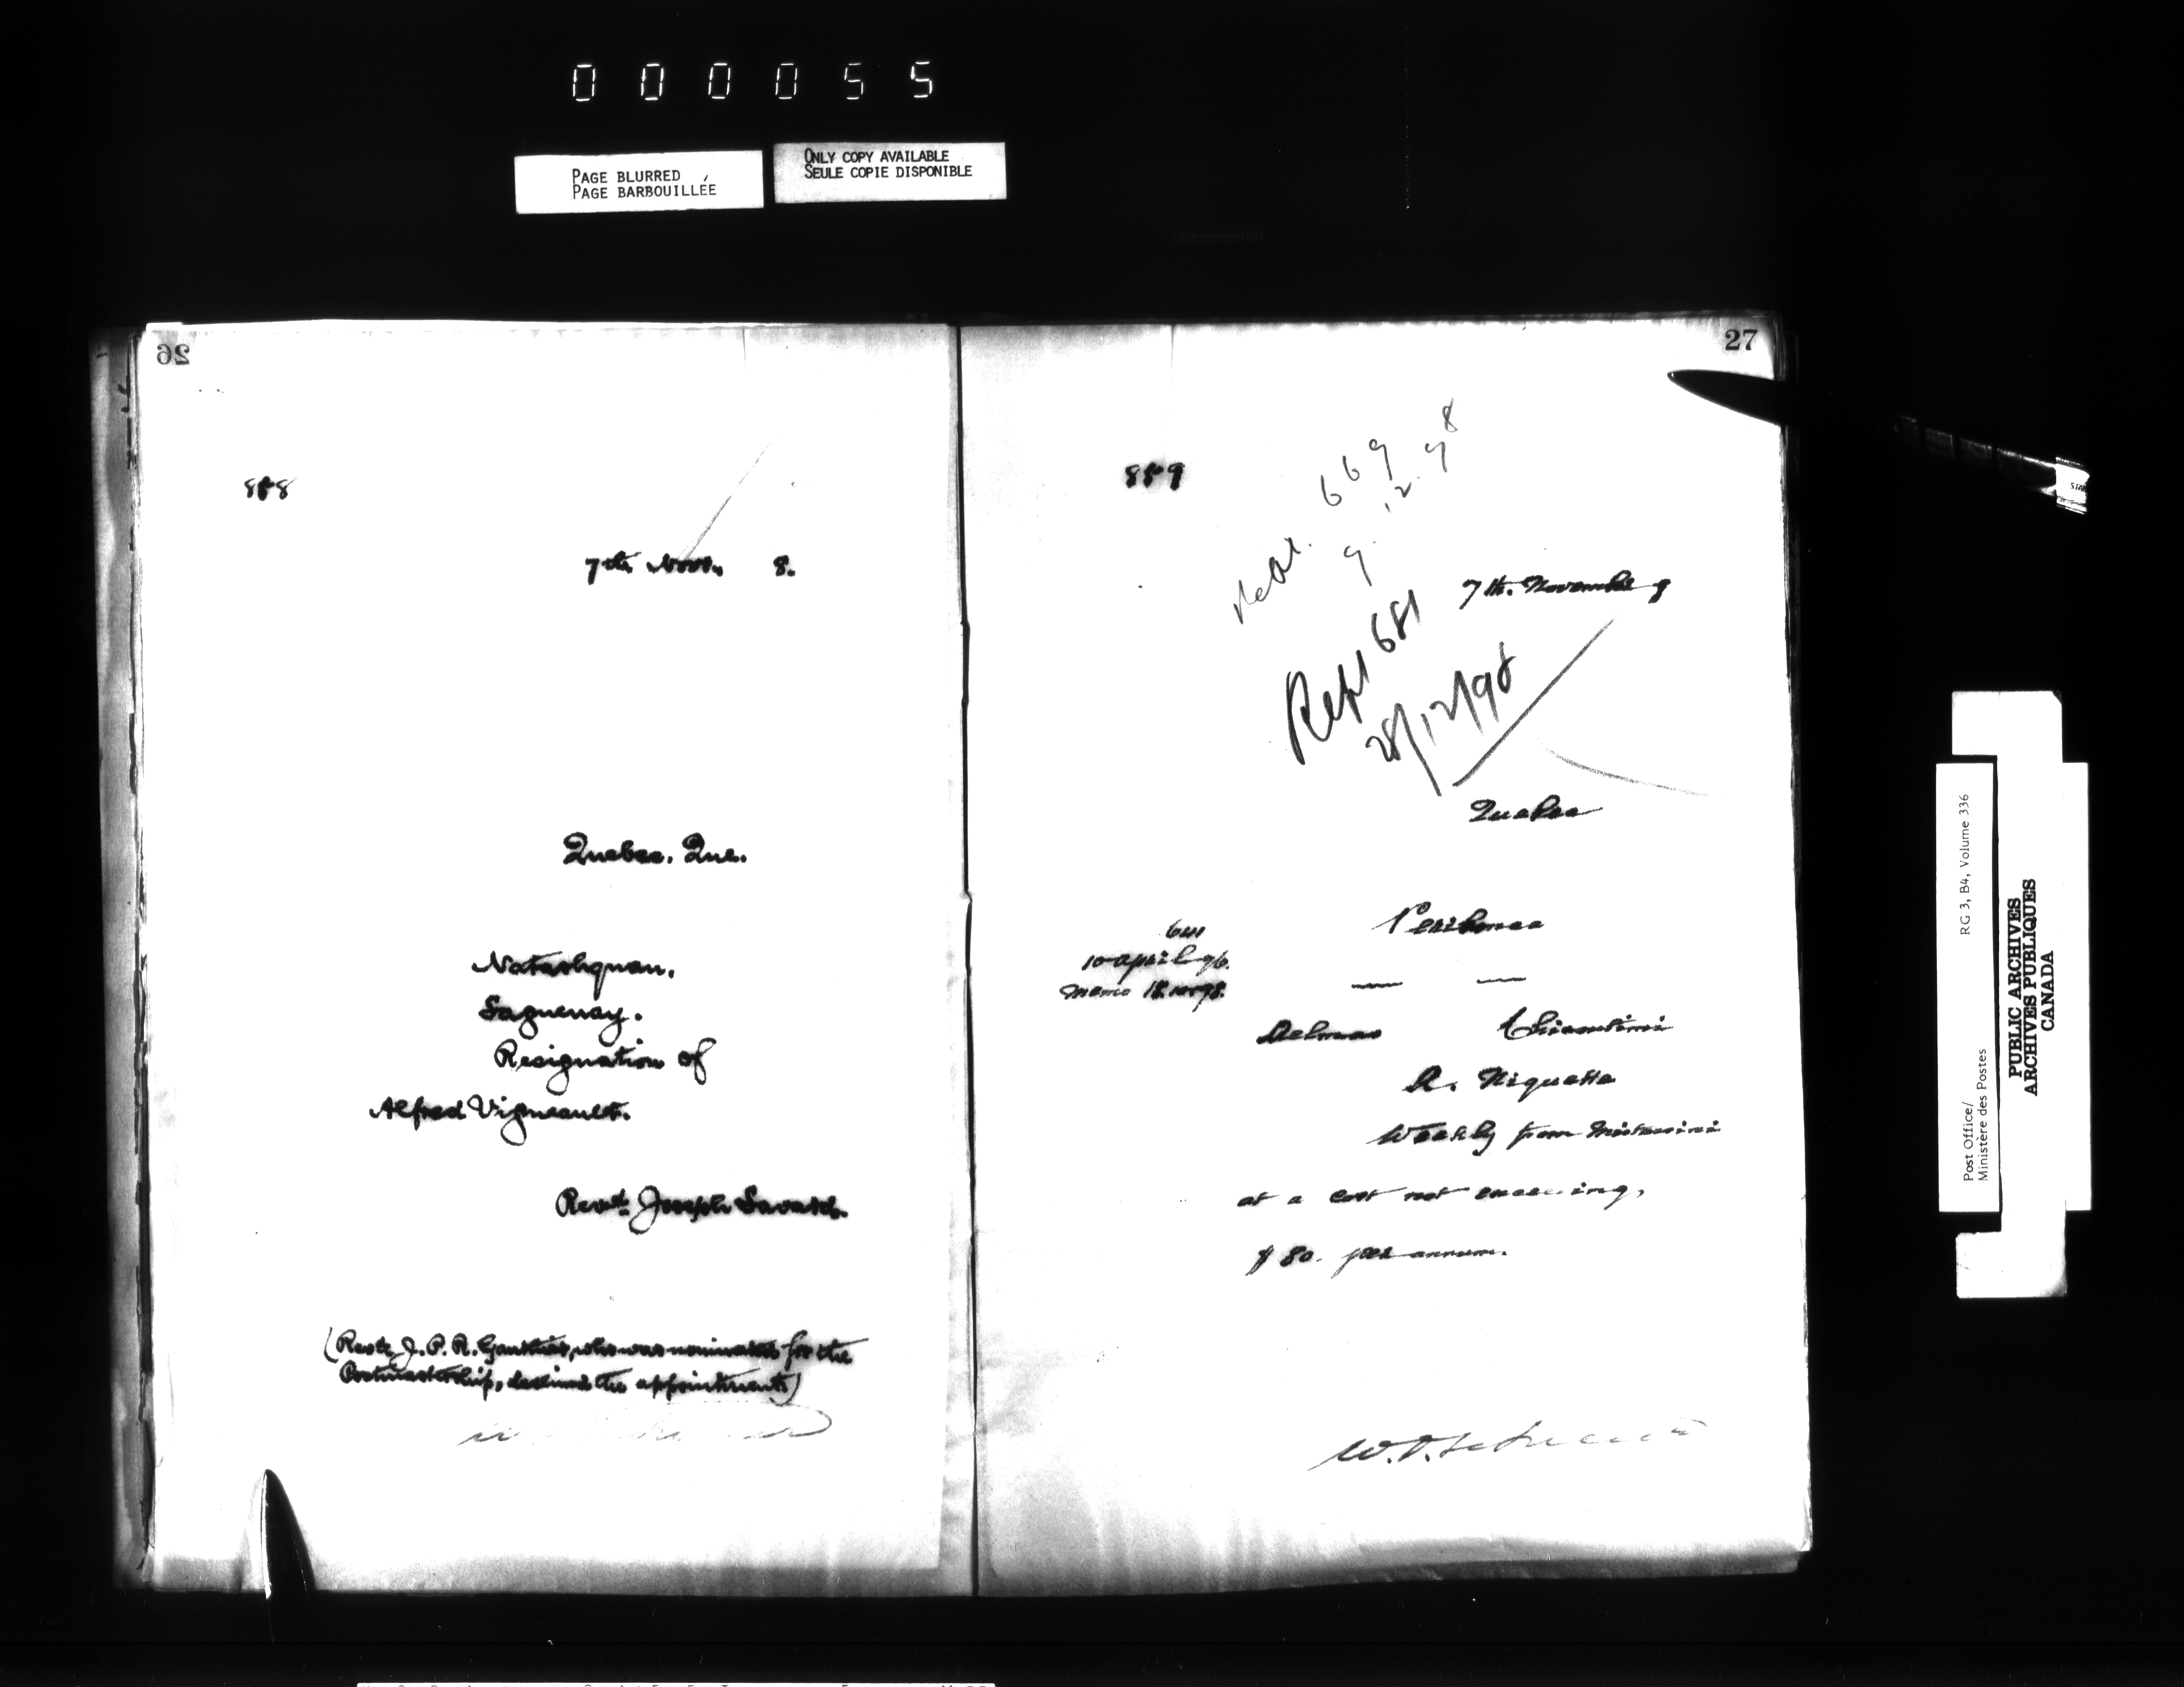 000055
PAGE BLURRED
PAGE BARBOUILLÉE
ONLY COPY AVAILABLE
SEULE COPIE DISPONIBLE
26
858
7th Nov. 8.
Quebec. Que.
Natashquan.
Saguenay.
Resignation of
Alfred Vigneault.
Revd. Joseph
(Revd. J. P. R. Gauthier, who was nominated for the
Postmastership, declined the appointment)
27
859
669
9.12.98
7th. November 8
Rept 681
28/12/98
Quebec
Peribonca
10 april 96.
memo
Delmas Chicoutimi
A. Niquette
Weekly from Mistassini
at a cost not exceeding,
$80. per annum.
RG 3, B4, Volume 336
Post Office/
Ministère des Postes
PUBLIC ARCHIVES
ARCHIVES PUBLIQUES
CANADA